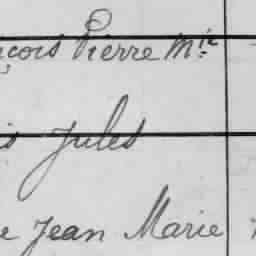 çois Pierre M.ie
s Jules
e Jean Marie